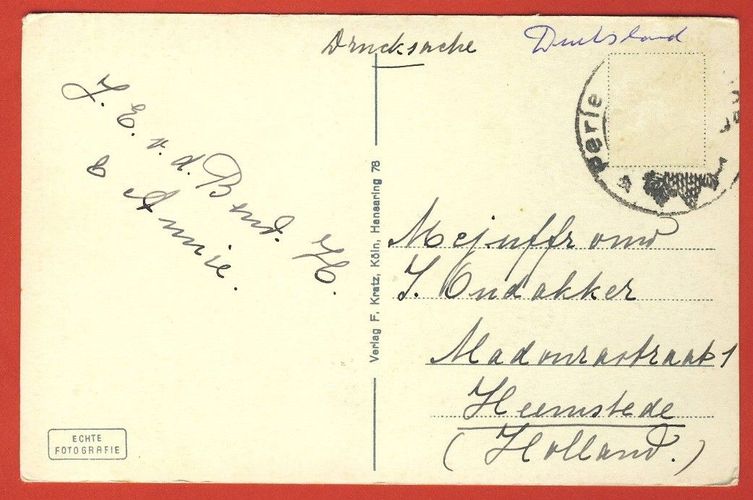 Drucksache
Duitsland
J. E. v. d. Bend. H.
& Annie.
perle
Verlag F. Kratz, Köln, Hansaring 78
Mejuffrouw
J. Oudakker
Madourastraat 1
Heemstede
(Holland.)
ECHTE
FOTOGRAFIE